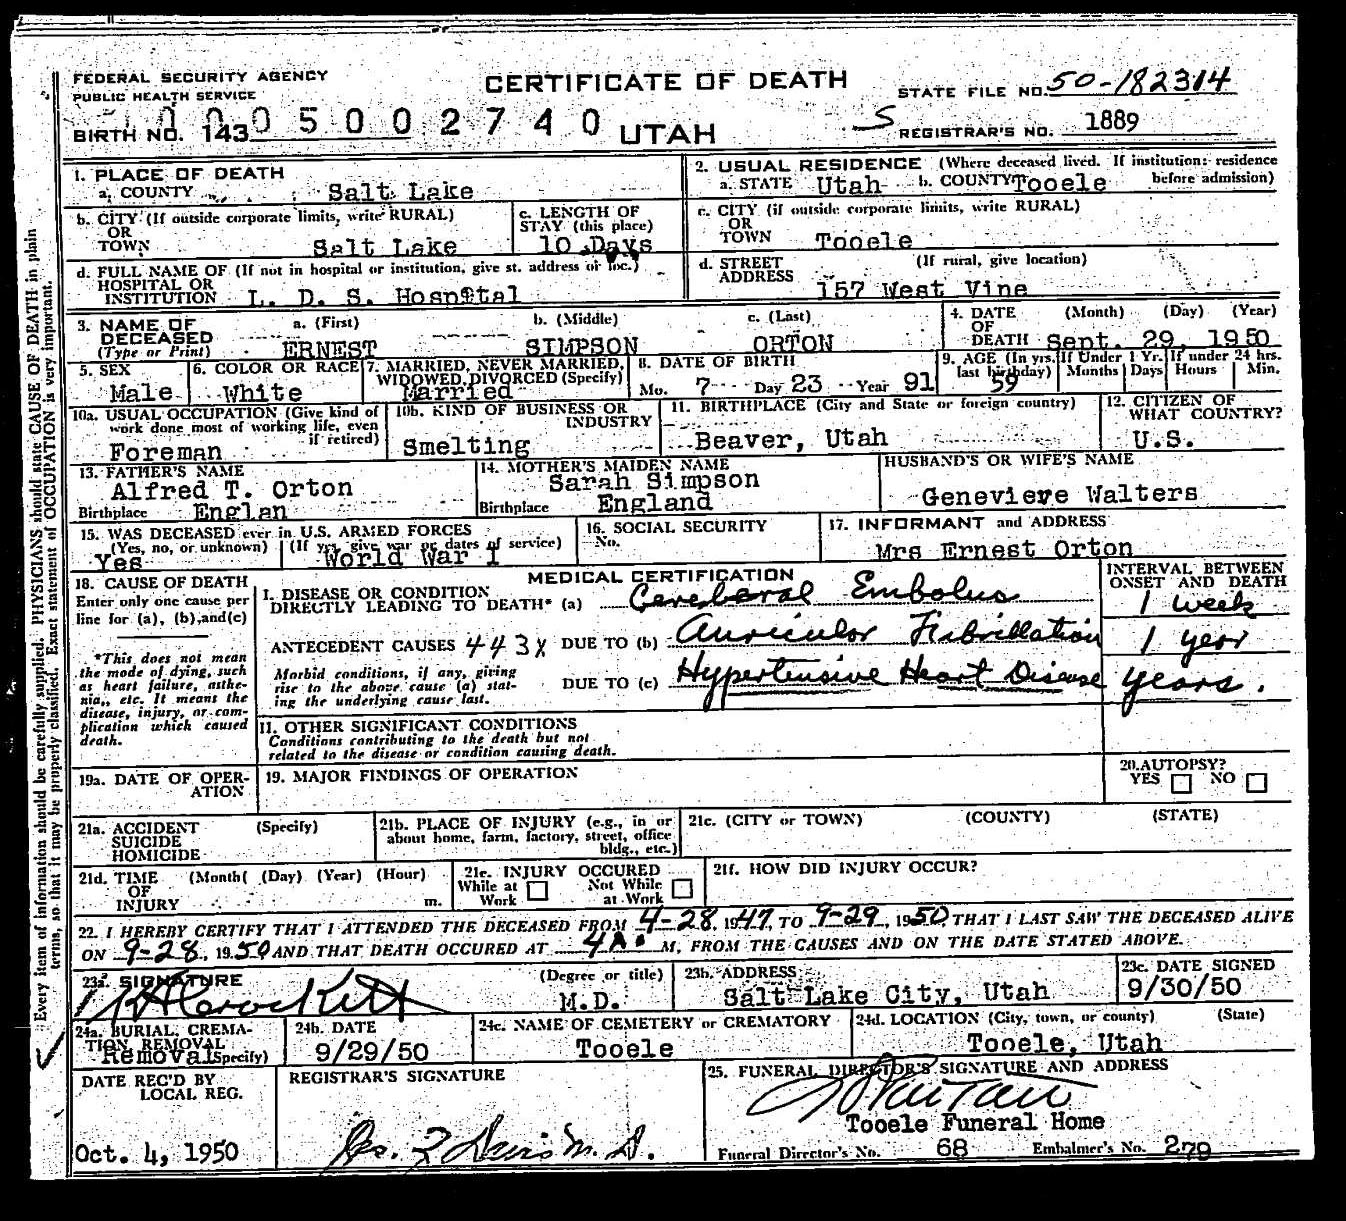 FEDERAL SECURITY AGENCY
PUBLIC HEALTH SERVICE
CERTIFICATE OF DEATH
STATE FILE NO. 50-182314
BIRTH NO. 143 0 5 0 0 2 7 4 0
UTAH
S REGISTRAR'S NO. 1889
1. PLACE OF DEATH
a. COUNTY Salt Lake
2. USUAL RESIDENCE (Where deceased lived. If institution: residence before admission)
a. STATE Utah b. COUNTY Tooele
b. CITY (If outside corporate limits, write RURAL)
OR
TOWN Salt Lake
c. LENGTH OF
STAY (this place)
10 Days
c. CITY (if outside corporate limits, write RURAL)
OR
TOWN Tooele
d. FULL NAME OF (If not in hospital or institution, give st. address or loc.)
HOSPITAL OR
INSTITUTION L. D. S. Hospital
d. STREET (If rural, give location)
ADDRESS 157 West Vine
3. NAME OF DECEASED
(Type or Print)
a. (First) b. (Middle) c. (Last)
ERNEST SIMPSON ORTON
4. DATE OF DEATH (Month) (Day) (Year)
Sept. 29, 1950
5. SEX
Male
6. COLOR OR RACE
White
7. MARRIED, NEVER MARRIED,
WIDOWED, DIVORCED (Specify)
Married
8. DATE OF BIRTH
Mo. 7 Day 23 Year 91
9. AGE (In yrs. last birthday)
59
If Under 1 Yr. Months Days
If under 24 hrs. Hours Min.
10a. USUAL OCCUPATION (Give kind of
work done most of working life, even
if retired)
Foreman
10b. KIND OF BUSINESS OR
INDUSTRY
Smelting
11. BIRTHPLACE (City and State or foreign country)
Beaver, Utah
12. CITIZEN OF
WHAT COUNTRY?
U.S.
13. FATHER'S NAME
Alfred T. Orton
Birthplace Englan
14. MOTHER'S MAIDEN NAME
Sarah Simpson
Birthplace England
HUSBAND'S OR WIFE'S NAME
Genevieve Walters
15. WAS DECEASED ever in U.S. ARMED FORCES
(Yes, no, or unknown) (If yes, give war or dates of service)
Yes World War I
16. SOCIAL SECURITY
No.
17. INFORMANT and ADDRESS
Mrs Ernest Orton
18. CAUSE OF DEATH
Enter only one cause per
line for (a), (b), and (c)
*This does not mean
the mode of dying, such
as heart failure, asthe-
nia, etc. It means the
disease, injury, or com-
plication which caused
death.
MEDICAL CERTIFICATION
INTERVAL BETWEEN
ONSET AND DEATH
I. DISEASE OR CONDITION
DIRECTLY LEADING TO DEATH* (a) Cerebral Embolus 1 week
ANTECEDENT CAUSES 443X DUE TO (b) Auricular Fibrillation 1 year
Morbid conditions, if any, giving
rise to the above cause (a) stat-
ing the underlying cause last.
DUE TO (c) Hypertensive Heart Disease years.
II. OTHER SIGNIFICANT CONDITIONS
Conditions contributing to the death but not
related to the disease or condition causing death.
19a. DATE OF OPER-
ATION
19. MAJOR FINDINGS OF OPERATION
20. AUTOPSY?
YES NO
21a. ACCIDENT (Specify)
SUICIDE
HOMICIDE
21b. PLACE OF INJURY (e.g., in or
about home, farm, factory, street, office
bldg., etc.)
21c. (CITY or TOWN) (COUNTY) (STATE)
21d. TIME (Month( (Day) (Year) (Hour)
OF
INJURY m.
21e. INJURY OCCURED
While at Work Not While at Work
21f. HOW DID INJURY OCCUR?
22. I HEREBY CERTIFY THAT I ATTENDED THE DECEASED FROM 4-28, 1947, TO 9-29, 1950, THAT I LAST SAW THE DECEASED ALIVE
ON 9-28, 1950 AND THAT DEATH OCCURED AT 4A. M, FROM THE CAUSES AND ON THE DATE STATED ABOVE.
23a. SIGNATURE (Degree or title)
Crockett M.D.
23b. ADDRESS
Salt Lake City, Utah
23c. DATE SIGNED
9/30/50
24a. BURIAL, CREMA-
TION, REMOVAL
Removal (Specify)
24b. DATE
9/29/50
24c. NAME OF CEMETERY or CREMATORY
Tooele
24d. LOCATION (City, town, or county) (State)
Tooele, Utah
DATE REC'D BY
LOCAL REG.
Oct. 4, 1950
REGISTRAR'S SIGNATURE
M.D.
25. FUNERAL DIRECTOR'S SIGNATURE AND ADDRESS
Tooele Funeral Home
Funeral Director's No. 68 Embalmer's No. 279
Every item of information should be carefully supplied. PHYSICIANS should state CAUSE OF DEATH in plain
terms, so that it may be properly classified. Exact statement of OCCUPATION is very important.